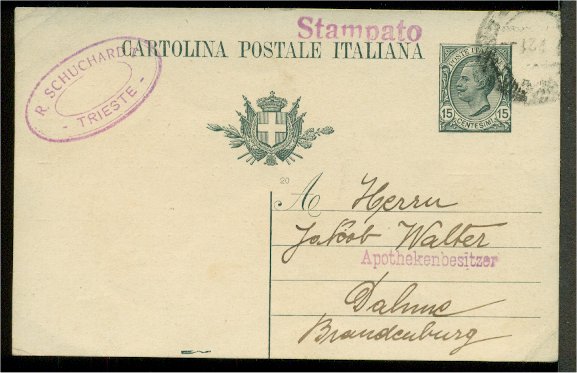 Stampato
CARTOLINA POSTALE ITALIANA
R. SCHUCHARDT
- TRIESTE -
POSTE ITALIANE
15 CENTESIMI 15
20
A Herrn
Jakob Walter
Apothekenbesitzer
Dahme
Brandenburg